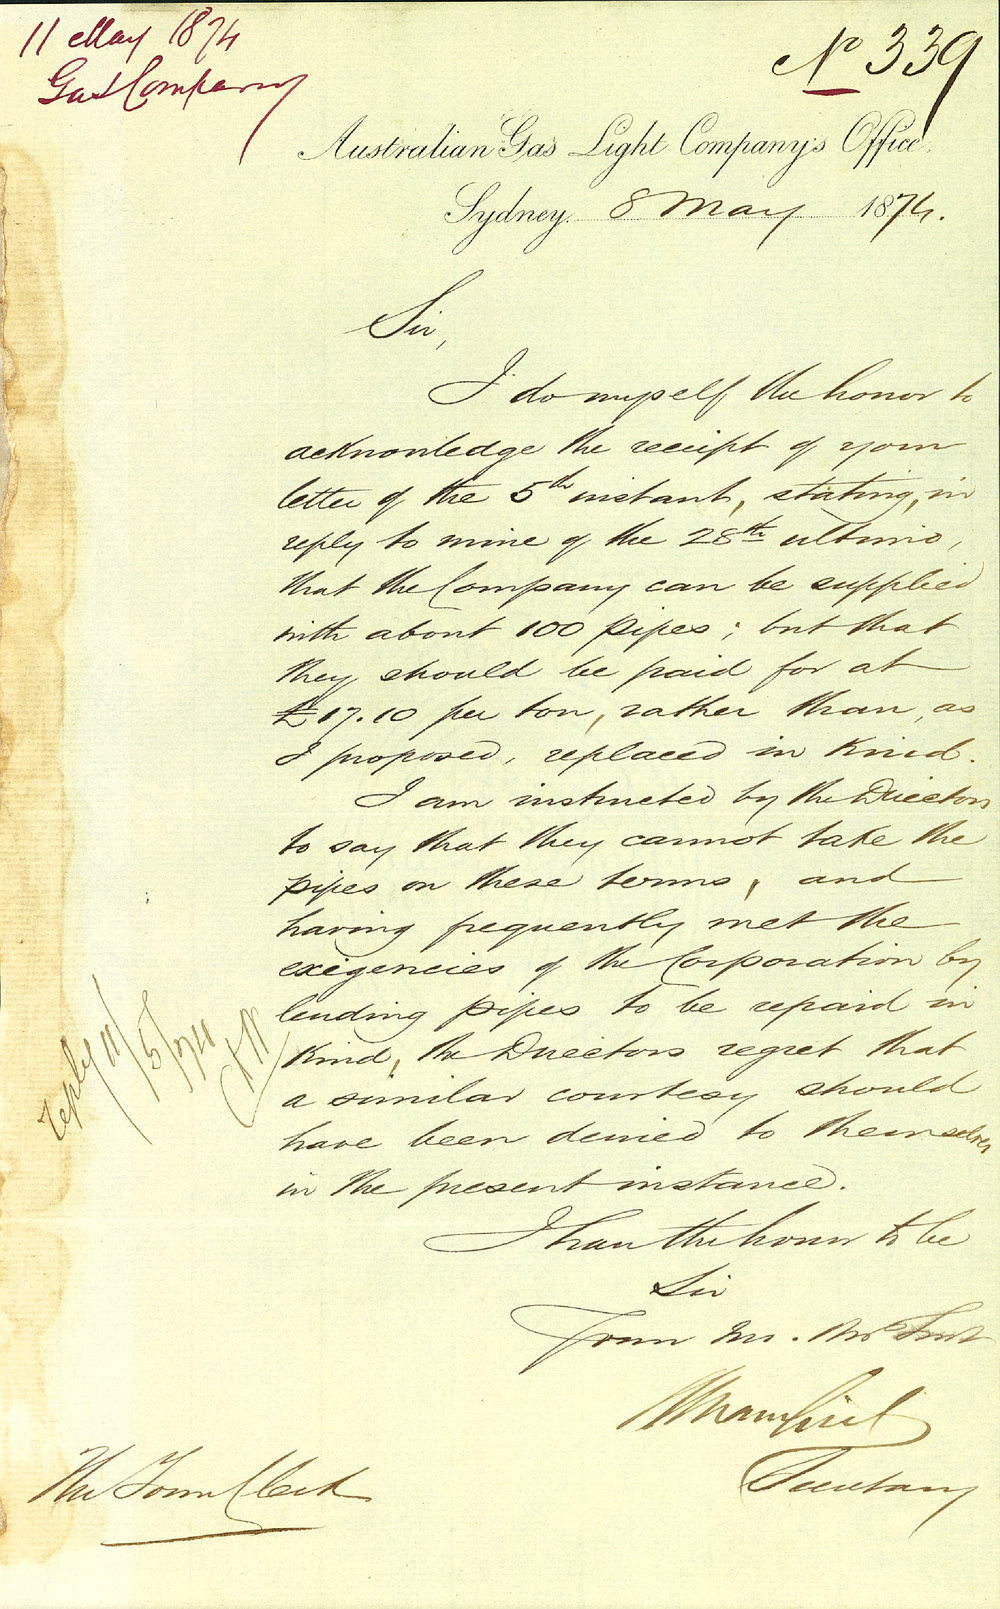 11 May 1874
Gas Company
No 339
Australian Gas Light Company's Office.
Sydney. 8 May 1874.
Sir,
I do myself the honor to
acknowledge the receipt of your
letter of the 5th instant, stating, in
reply to mine of the 28th ultimo,
that the Company can be supplied
with about 100 pipes; but that
they should be paid for at
£17.10 per ton, rather than, as
I proposed, replaced in kind.
I am instructed by the Directors
to say that they cannot take the
pipes on these terms, and
having frequently met the
exigencies of the Corporation by
lending pipes to be repaid in
Kind, the Directors regret that
a similar courtesy should
have been denied to themselves
in the present instance.
reply 11/5/74
I have the honor to be
Sir
Your
Secretary
The Town Clerk